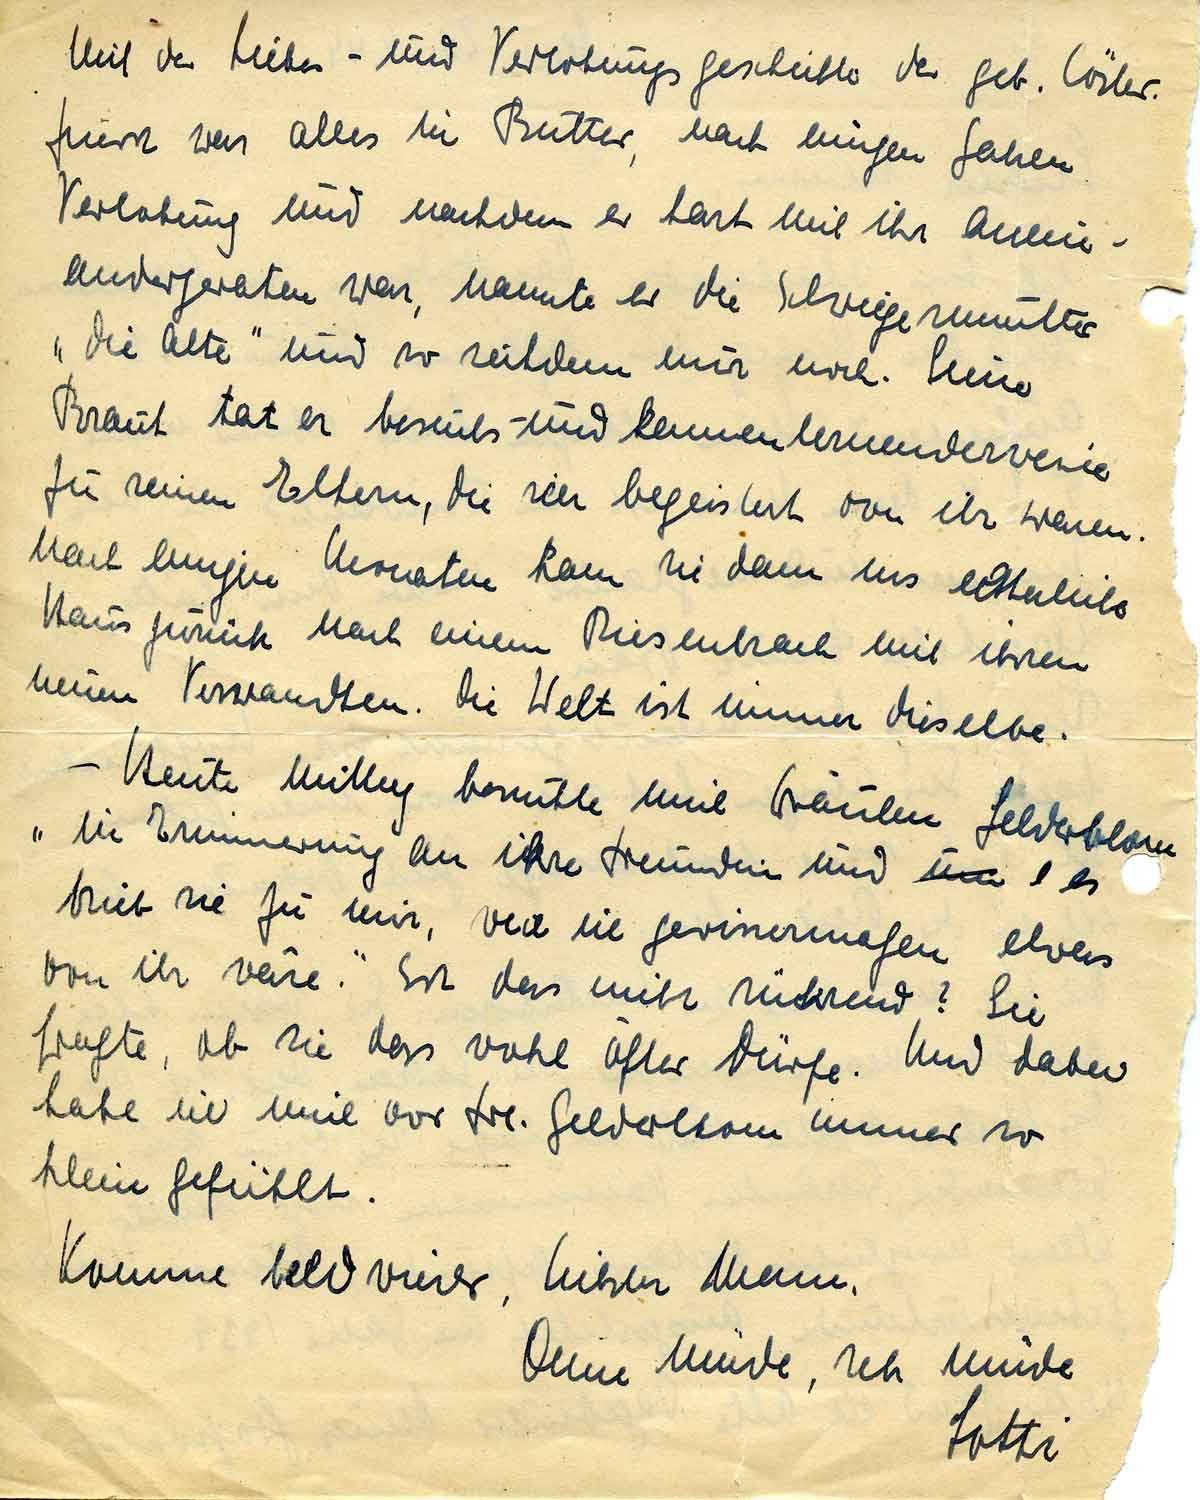 Mit der Liebes- und Verlobungsgeschichte der geb. Cöster.
Zuerst war alles in Butter, nach einigen Jahren
Verlobung und nachdem er hart mit ihr anein-
andergeraten war, nannte er die Schwiegermutter
„die Alte" und so seitdem nur noch. Seine
Braut tat er besuchs- und kennenlernenderweise
zu seinen Eltern, die sehr begeistert von ihr waren.
Nach einigen Monaten kam sie dann ins elterliche
Haus zurück nach einem Riesenkrach mit ihren
neuen Verwandten. Die Welt ist immer dieselbe.
- Heute Mittag besuchte mich Fräulen Gelderblom
„in Erinnerung an ihre Freundin und um es
trieb sie zu mir, weil ich gewissermaßen etwas
von ihr wäre." Ist das nicht rührend? Sie
fragte, ob sie das wohl öfter dürfe. Und dabei
habe ich mich vor Frl. Gelderblom immer so
klein gefühlt.
Komme bald wieder, liebster Mann.
Deine müde, sehr müde
Lotti